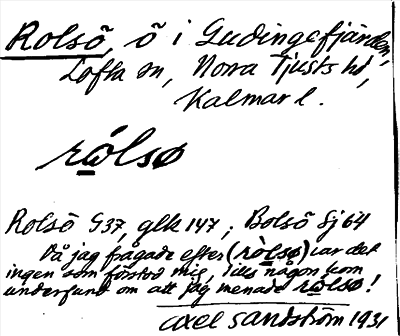 Rolsö, ö i Gudingefjärden,
Lofta sn, Norra Tjusts hd,
Kalmar l.
rólsø
Rolsö G37, glk 147, Bolsö Sj 64
Då jag frågade efter (ròlsø) var det
ingen som förstod mig, tills någon kom
underfund om att jag menade rólsø!
Axel Sandström 1931